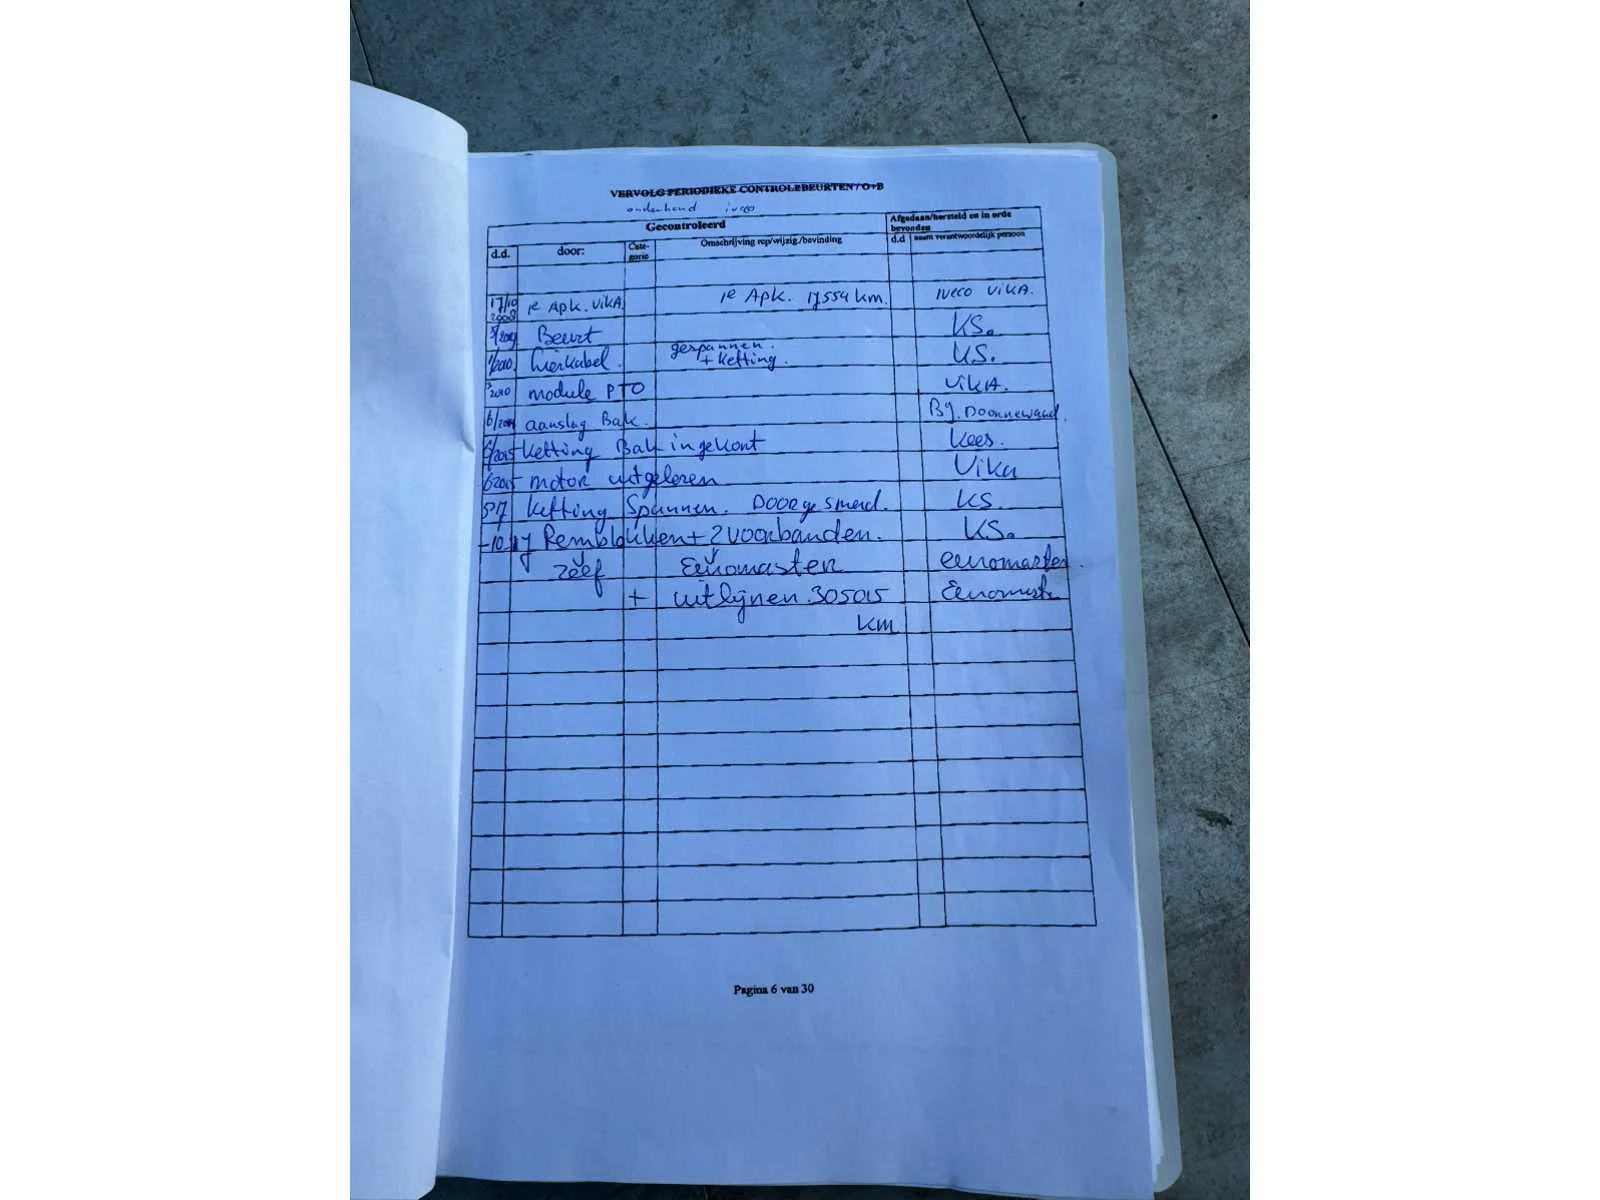 VERVOLG PERIODIEKE CONTROLEBEURTEN / O+B
onderhoud iveco
Gecontroleerd Afgedaan/hersteld en in orde bevonden
d.d. door: Cate-gorie Omschrijving rep/wijzig./bevinding d.d naam verantwoordelijk persoon
17/10 2008 1e Apk. VikA. 1e Apk. 17554 km. Iveco VikA.
Beurt KS.
Lierkabel. gespannen. + Ketting. KS.
3 2010 module PTO VikA.
aanslag Bak. Bij. Doornewaard.
6/2015 Ketting Bak ingekort Kees.
6 2015 motor uitgelezen Vika
5 17 Ketting Spannen. Doorgesmeerd. KS.
-10-17 Remblokken + 2 voorbanden. KS.
zelf Euromaster euromaster.
+ uitlijnen. 305015 Euromaster
km
Pagina 6 van 30